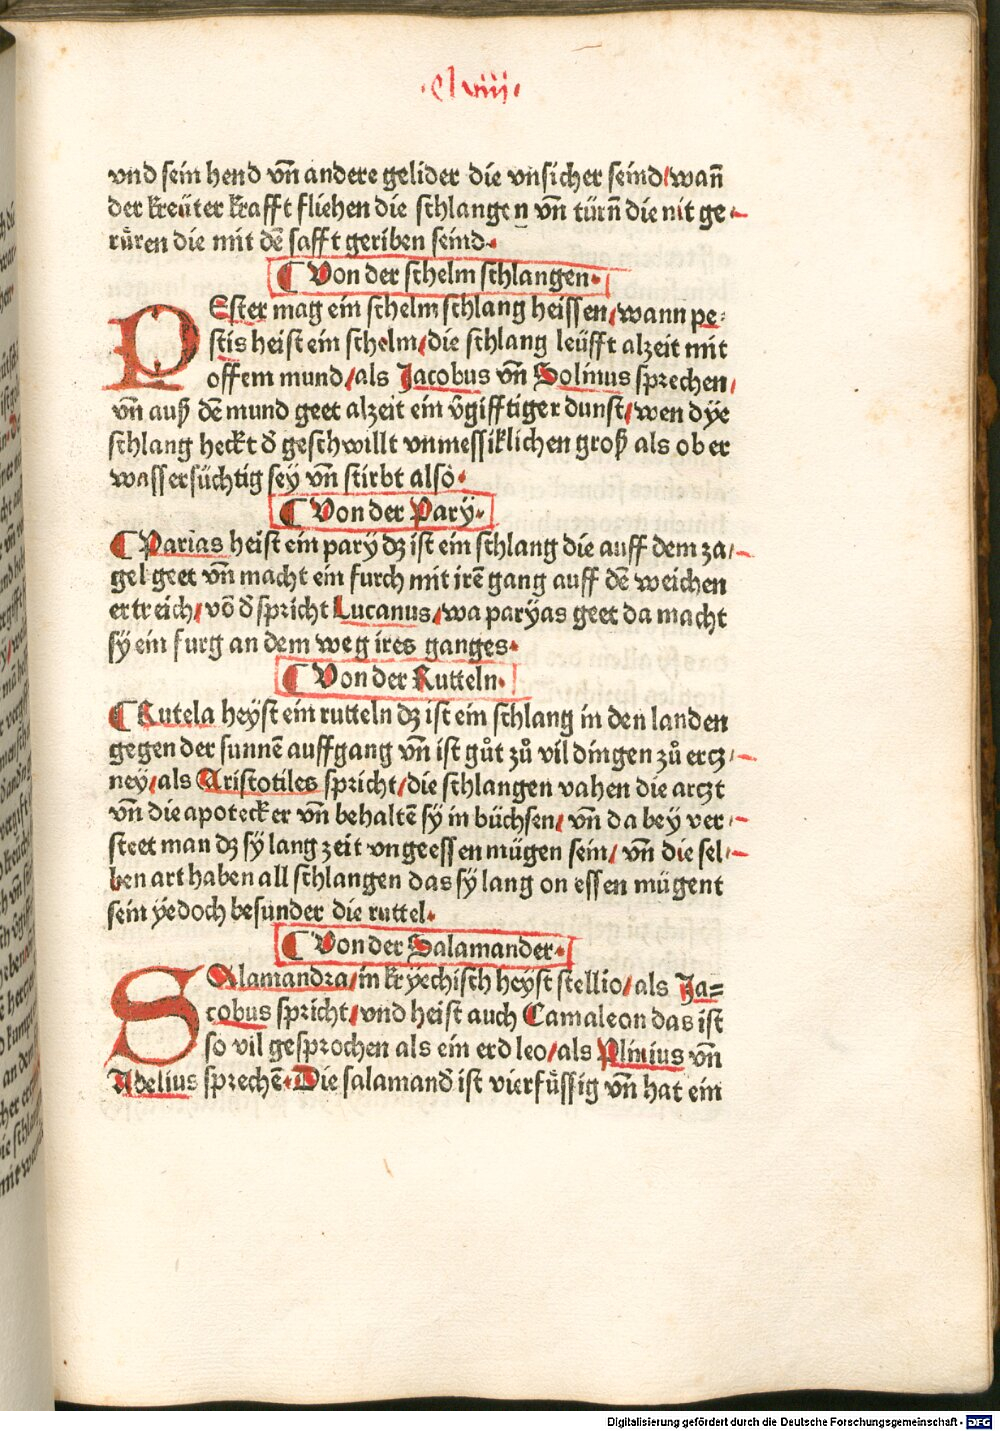 ·Clviij·
vnd sein hend vñ andere gelider die vnsicher seind/wañ
der kreüter krafft fliehen die schlangen vñ türñ die nit ge-
rüren die mit dẽ safft geriben seind.
¶ Von der schelm schlangen.
PEster mag ein schelm schlang heissen/wann pe-
stis heist ein schelm/die schlang leüfft alzeit mit
offem mund/als Jacobus vñ Solinus sprechen/
vñ auß dẽ mund geet alzeit ein v̂gifftiger dunst/wen dye
schlang heckt d̕ geschwillt vnmessiklichen groß als ob er
wassersüchtig sey vñ stirbt also.
¶ Von der Parÿ.
¶ Parias heist ein parÿ dz ist ein schlang die auff dem za-
gel geet vñ macht ein furch mit irẽ gang auff dẽ weichen
ertreich/võ d̕ spricht Lucanus/wa parÿas geet da macht
sÿ ein furg an dem weg ires ganges.
¶ Von der Rutteln.
¶ Rutela heyst ein rutteln dz ist ein schlang in den landen
gegen der sunnẽ auffgang vñ ist gůt zů vil dingen zů ercz-
ney/als Aristotiles spricht/die schlangen vahen die arczt
vñ die apotecker vñ behaltẽ sÿ in büchsen/ vñ da beÿ ver-
steet man dz sÿ lang zeit vngeessen mügen sein/ vñ die sel-
ben art haben all schlangen das sÿ lang on essen mügent
sein ÿedoch besunder die ruttel.
¶ Von der Salamander.
SAlamandra/in krÿechisch heyst stellio/als Ja=
cobus spricht/vnd heist auch Camaleon das ist
so vil gesprochen als ein erd leo/als Plinius vñ
Adelius sprechẽ. Die salamand̕ ist vierfüssig vñ hat ein
Digitalisierung gefördert durch die Deutsche Forschungsgemeinschaft - DFG